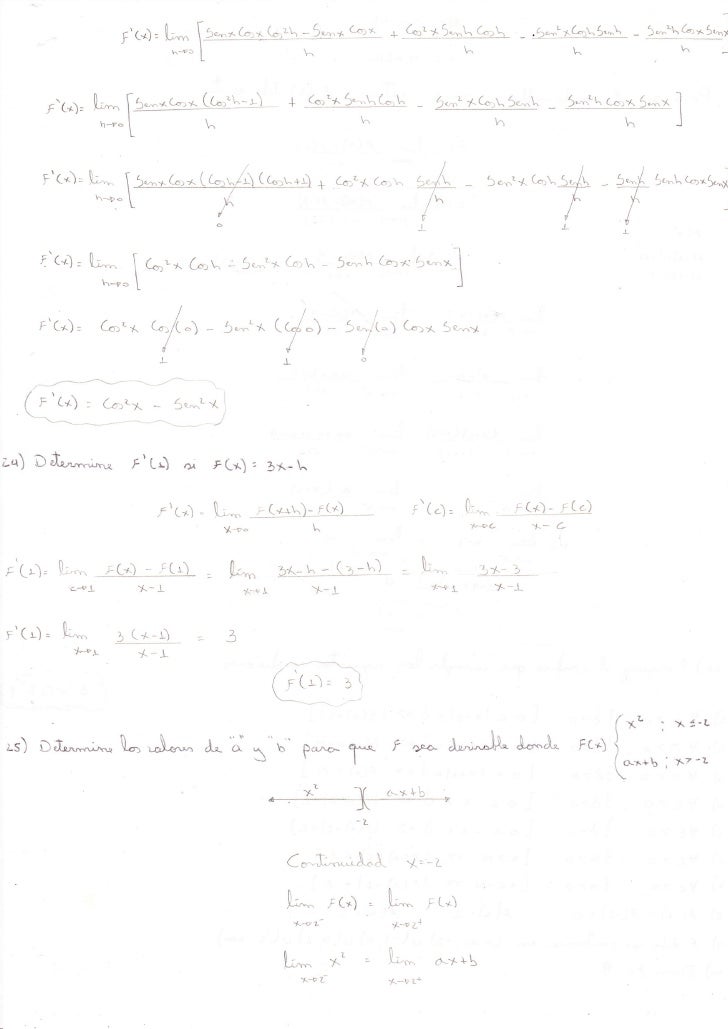 F'(x)= lim h→0 [ (Senx Cosx Cos²h - Senx Cosx)/h + (Cos²x Senh Cosh)/h - (Sen²x Cosh Senh)/h - (Sen²h Cosx Senx)/h
F'(x)= lim h→0 [ (Senx Cosx (Cos²h-1))/h + (Cos²x Senh Cosh)/h - (Sen²x Cosh Senh)/h - (Sen²h Cosx Senx)/h ]
F'(x)= lim h→0 [ (Senx Cosx (Cosh-1)(Cosh+1))/h + Cos²x Cosh Senh/h - Sen²x Cosh Senh/h - Senh/h Senh Cosx Senx
0 1 1 1
F'(x)= lim h→0 [ Cos²x Cosh - Sen²x Cosh - Senh Cosx Senx ]
F'(x)= Cos²x Cos(0) - Sen²x (Cos0) - Sen(0) Cosx Senx
1 1 0
F'(x) = Cos²x - Sen²x
24) Determine F'(1) si F(x)= 3x-h
F'(x)= lim x→0 (F(x+h)-F(x))/h F'(c)= lim x→c (F(x)-F(c))/(x-c)
F'(1)= lim c→1 (F(x)-F(1))/(x-1) = lim x→1 (3x-h-(3-h))/(x-1) = lim x→1 (3x-3)/(x-1)
F'(1)= lim x→1 (3(x-1))/(x-1) = 3
F'(1)= 3
25) Determine los valores de "a" y "b" para que F sea derivable donde F(x) { x² ; x≤-2
ax+b ; x>-2
x² ][ ax+b
-2
Continuidad x=-2
lim x→2⁻ F(x) = lim x→2⁺ F(x)
lim x→2⁻ x² = lim x→2⁺ ax+b